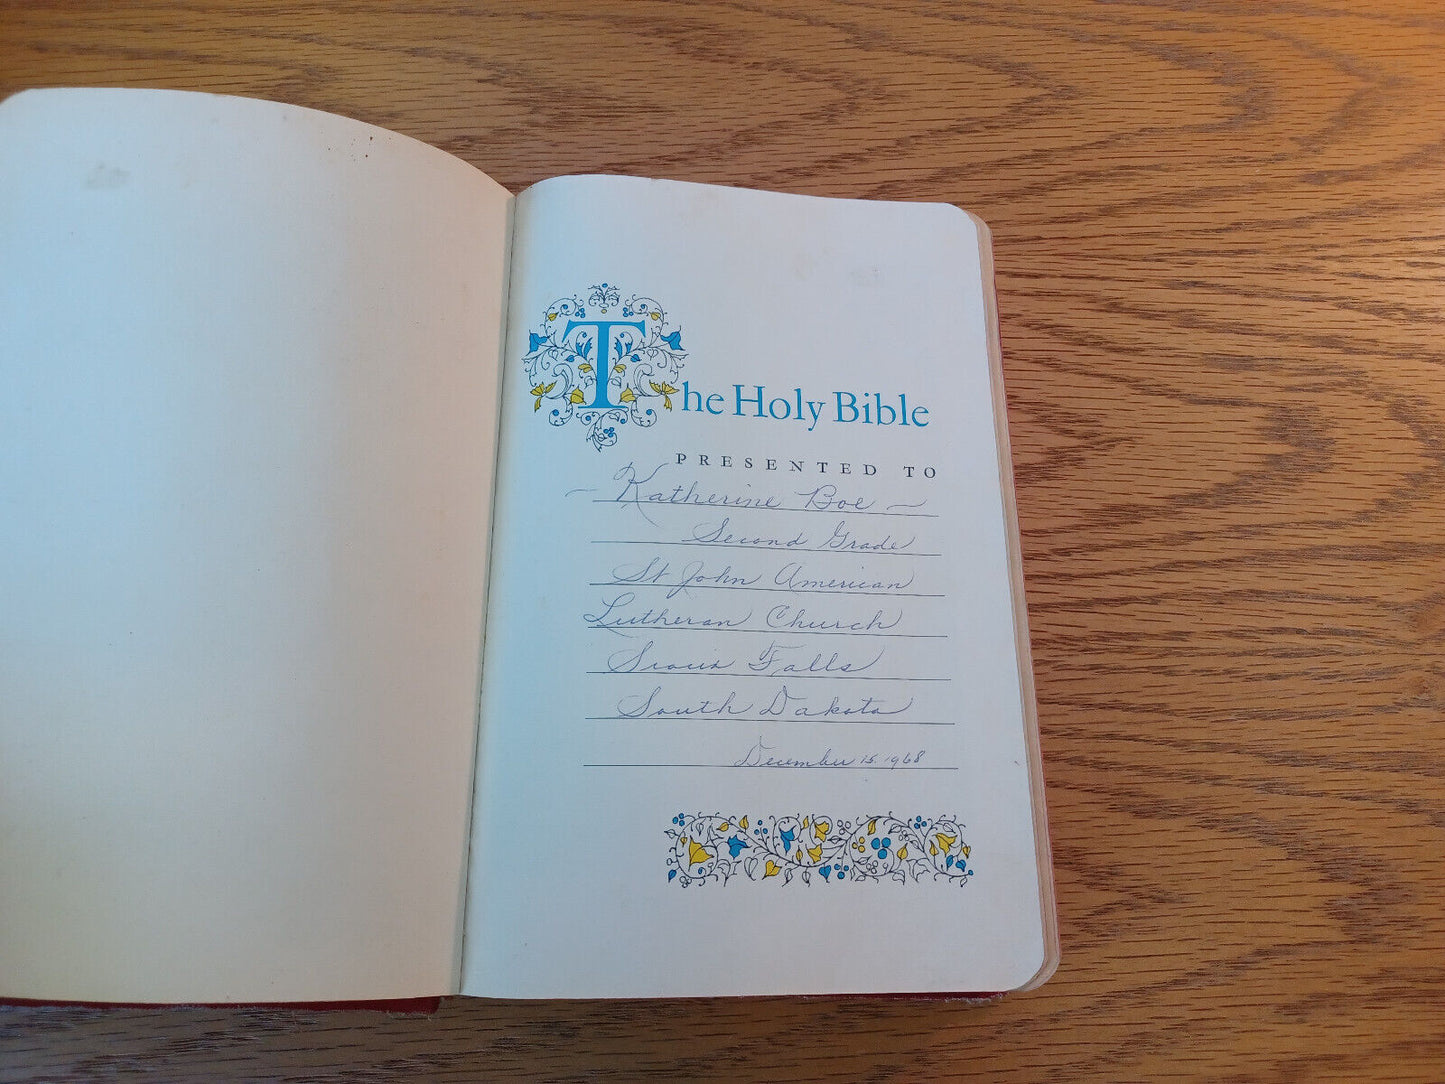 The Holy Bible
PRESENTED TO
Katherine Boe
Second Grade
St John American
Lutheran Church
Sioux Falls
South Dakota
December 15, 1968